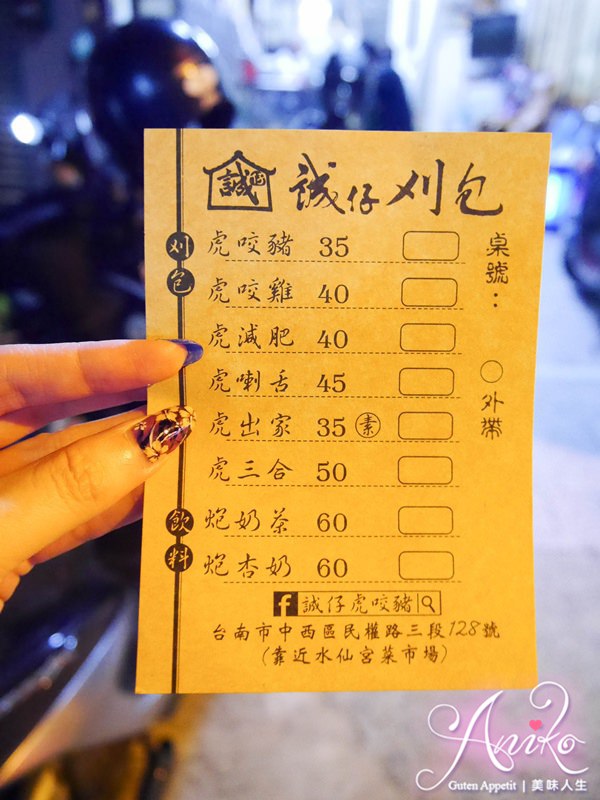 誠正 誠仔刈包
刈包
虎咬豬 35
虎咬雞 40
虎減肥 40
虎喇舌 45
虎出家 35 素
虎三合 50
飲料
炮奶茶 60
炮杏奶 60
桌號：
外帶
f 誠仔虎咬豬
台南市中西區民權路三段128號
(靠近水仙宮菜市場)
Aniko
Guten Appetit | 美味人生